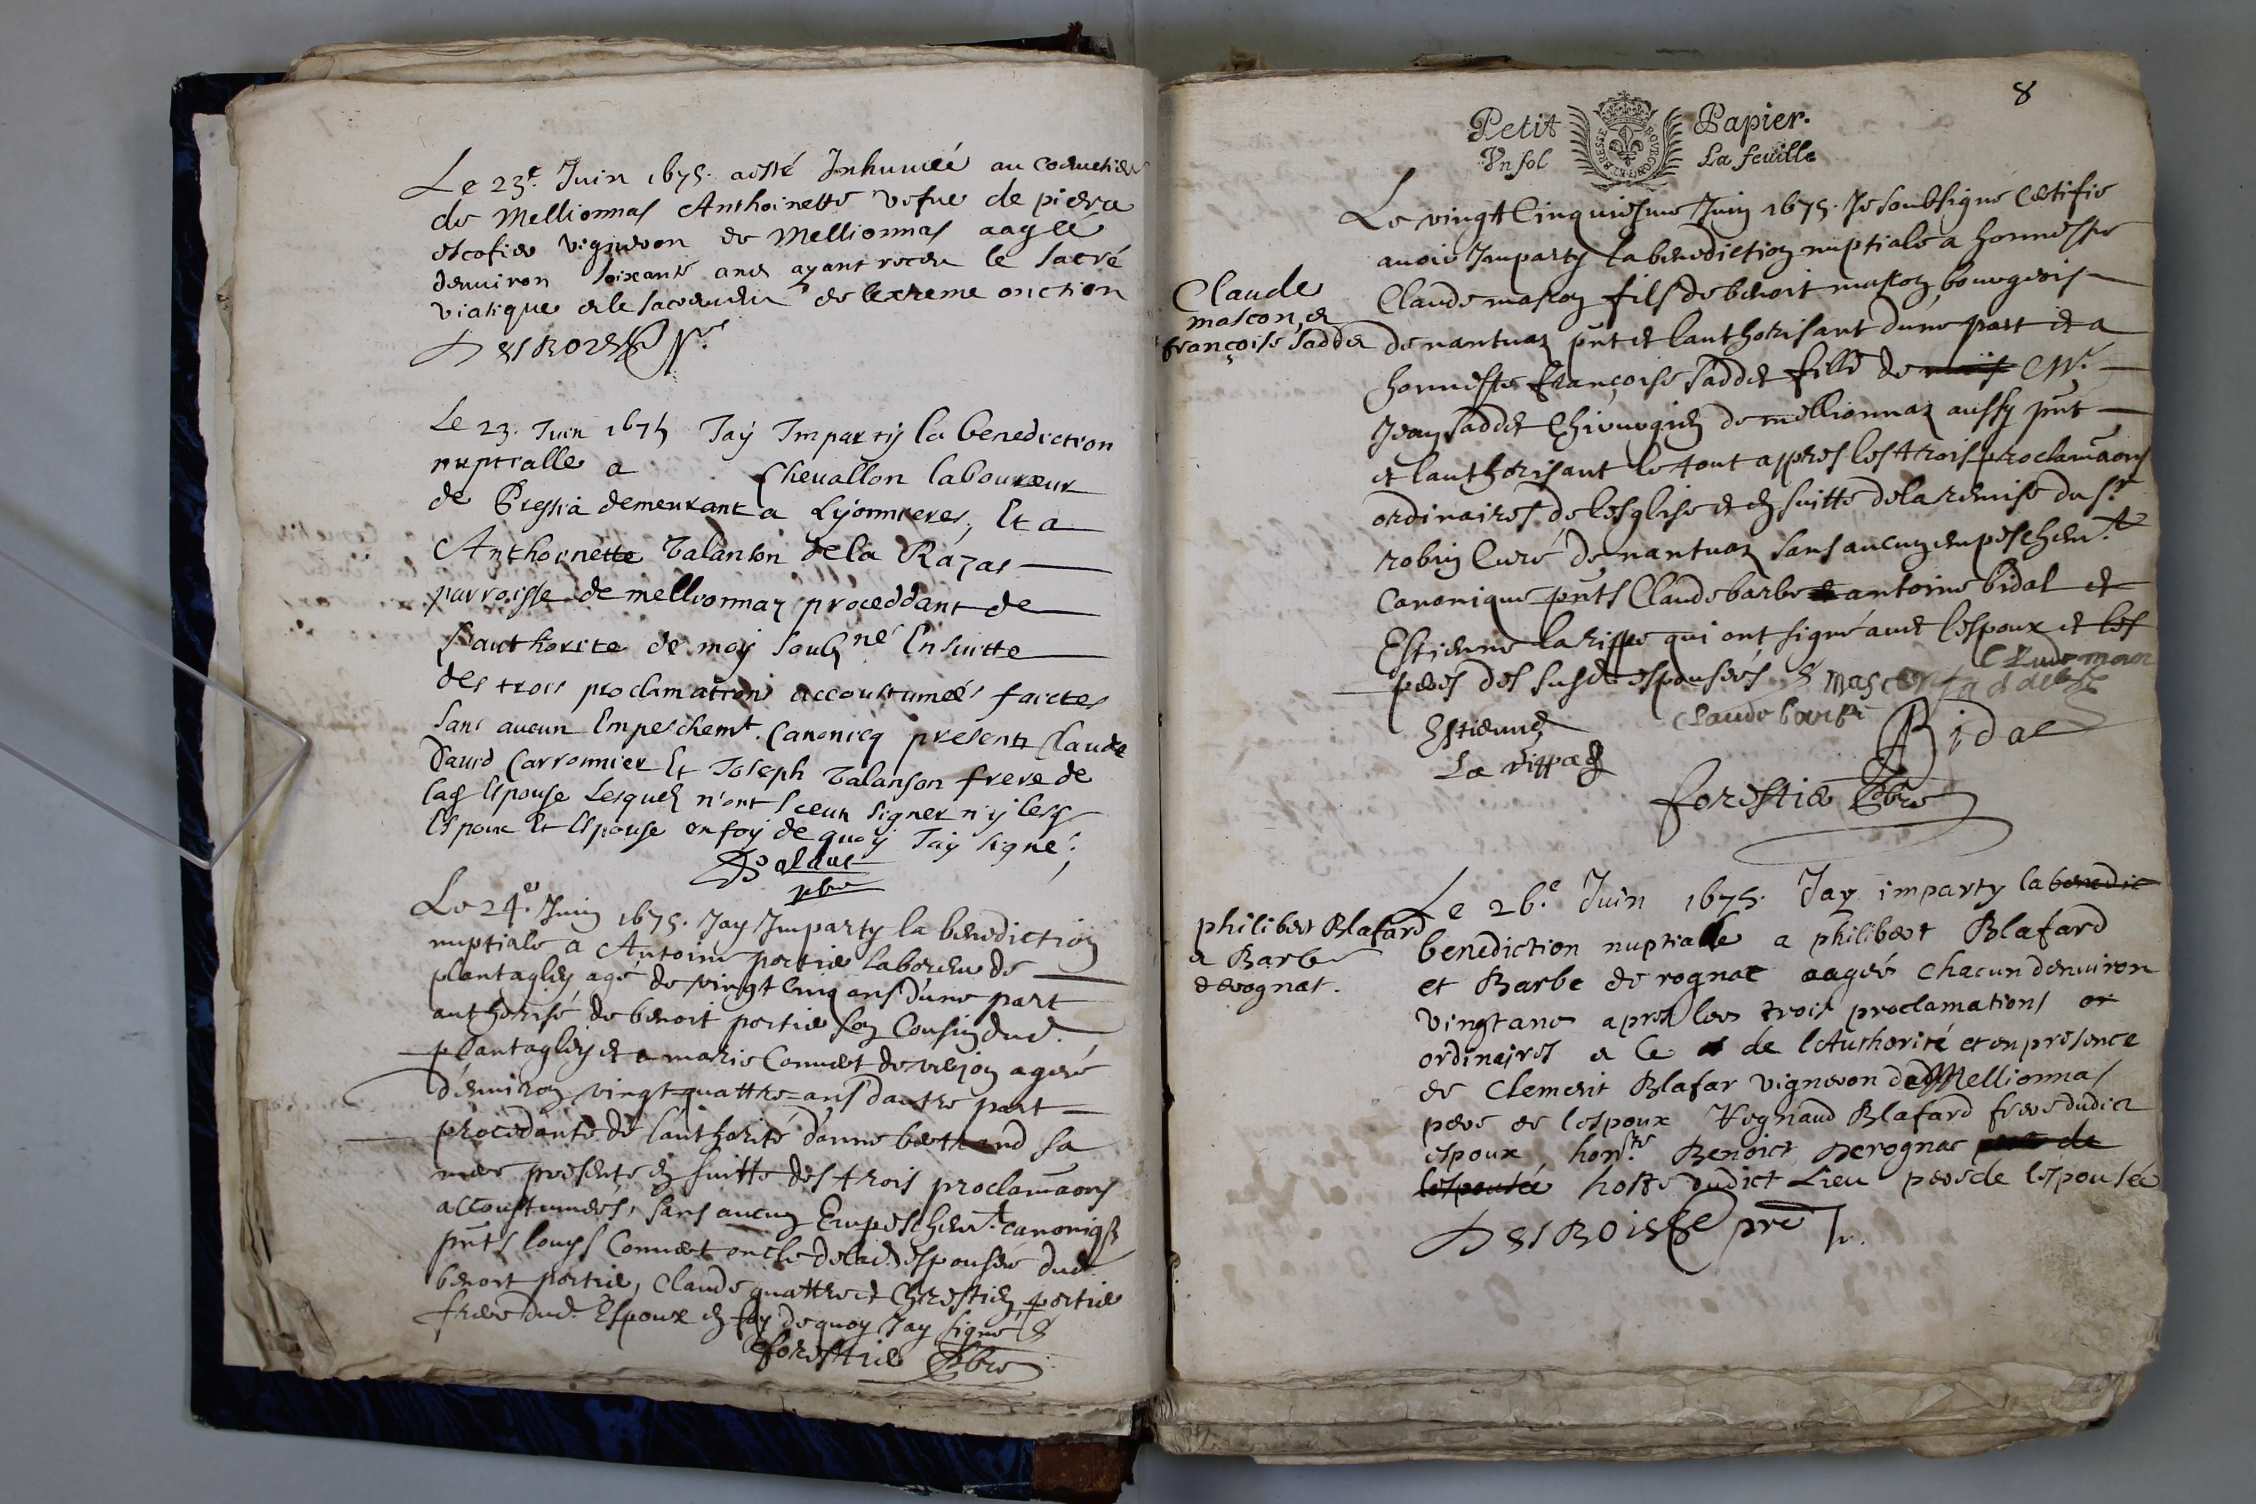 Le 23.e Juin 1675. a esté Inhumée au coemetier
de Mellionnas Anthoinette vefue de piera
escofier vigneron de Mellionnas aagéé
denuiron soixante ans ayant receu le sacré
viatique et le sacrement de lextreme onction
Le 23. Juin 1675 Jaÿ Imparty la benediction
nuptialle a Cheuallon laboureur
de Pressia demeurant a Lyonnieres, Et a
Anthoinette Talanson de la Razas
parroisse de mellionnaz proceddant de
l'authorite de moy soubsné Ensuitte
des trois proclamations accoustumées faictes
sans aucun Empeschemt. Canonicq presents Claude
Dauid Carronnier Et Joseph Talanson frere de
lad Espouse Lesquels n'ont sceu signer n'y lesd
Espoux Et Espouse en foy de quoy Jay signé.
pbre
Le 24.e Juin 1675. Jay Imparty la benediction
nuptiale a Antoine portier laboreur de
plantaglay agé de vingt cinq ans d'une part
authorisé de benoit portier son Cousin dud.
plantaglay et a marie Conuert de veljon agéé
d'enuiron vingt quattre ans dautre part
procedante de l'authorité danne bertrand sa
mere presente en suitte des trois proclamaons
accoustumées, sans aucun Empeschemt. canoniq
pnts louys Conuert oncle de lad. espousée dud.
benoit portier, Claude quattre et Chrestien portier
frere dud. Espoux en foy de quoy Jay signé
forestier Pbre
8
Petit Papier.
Vn sol La feuille
BRESSE BOVRGOGNE
Le vingt Cinquiesme Juin 1675. Je soubsigné Certifie
auoir Imparty la benediction nuptiale a honneste
Claude mascon fils de benoit mascon bourgeois
de nantuaz pnt et lauthorisant dune part et a
honneste françoise saddet fille de Mr.
Jean saddet Chirurgien de mellionnaz aussy pnt
et lauthorisant le tout appres les trois proclamaons
ordinaires de lesglise et en suitte de la remise du sr.
robin Curé de nantuaz sans aucun empeschemt
Canonique pnts Claude barbe antoine bidal et
Estienne la rippe qui ont signé auec lespoux et les
peres des susd. espousés
Claude
mascon, et
françoise saddet
Mascon
Saddet
Claude barbe
Estienne
La rippe
Bidal
forestier Pbre
philibert Blafard
et Barbe
derognat.
Le 26.e Juin 1675. Jay imparty la benedic
benediction nuptialle a philibert Blafard
et Barbe de rognat aagés chacun denuiron
vingt ans apres les trois proclamations or
ordinaires et ce de l'Authorité et en presence
de Clement Blafar vigneron de Mellionnas
pere de lespoux Regnaud Blafard frere dudict
espoux honste. Benoict Derognat pere de
lespousée hoste dudict Lieu pere de lespousée